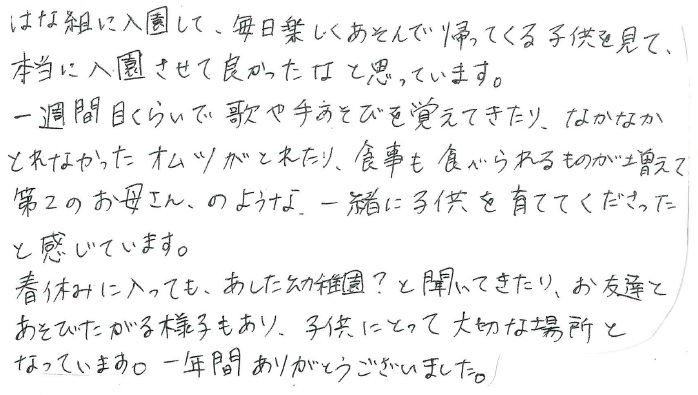 はな組に入園して、毎日楽しくあそんで帰ってくる子供を見て、
本当に入園させて良かったなと思っています。
一週間目くらいで歌や手あそびを覚えてきたり、なかなか
とれなかったオムツがとれたり、食事も食べられるものが増えて
第2のお母さん、のような、一緒に子供を育ててくださった
と感じています。
春休みに入っても、あした幼稚園?と聞いてきたり、お友達と
あそびたがる様子もあり、子供にとって大切な場所と
なっています。一年間ありがとうございました。